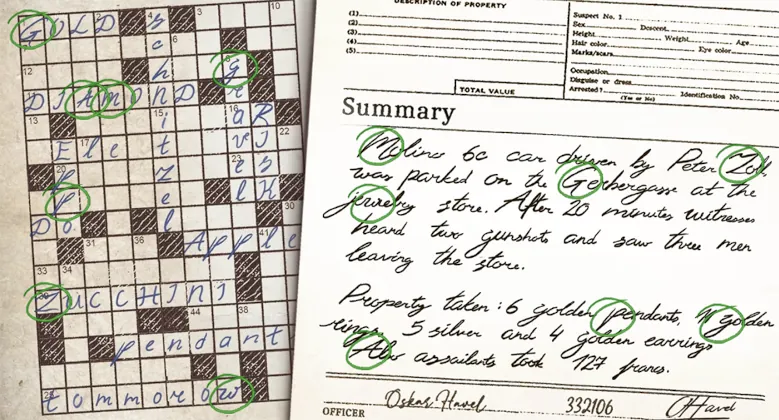 GOLD
DIAMOND
Ele
Do
Apple
ZUCCHINI
pendant
tommorow
schnitzel
DESCRIPTION OF PROPERTY
(1)
(2)
(3)
(4)
(5)
TOTAL VALUE
Suspect No. 1
Sex Descent
Height Weight Age
Hair color Eye color
Marks/scars
Occupation
Disguise or dress
Arrested? Identification No.
(Yes or No)
Summary
Molino 6c car driven by Peter
was parked on the Gerbergasse at the
jewelry store. After 20 minutes witnesses
heard two gunshots and saw three men
leaving the store.
Property taken: 6 golden pendants, 4 golden
rings, 5 silver and 4 golden earrings
Also assailants took 127 francs.
OFFICER Oskar Havel 332106 OHavel